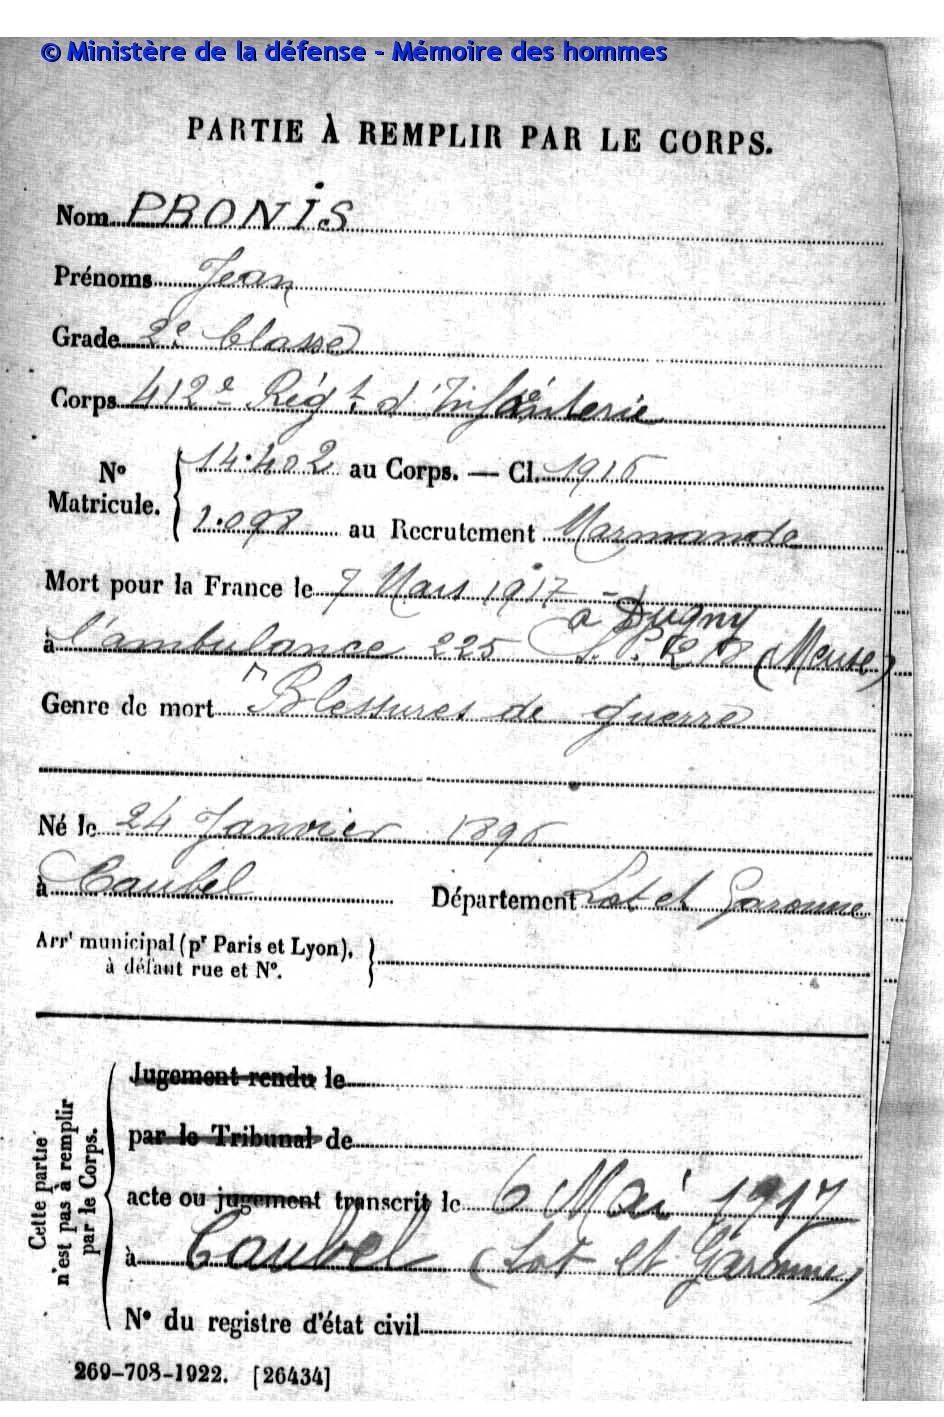 © Ministère de la défense - Mémoire des hommes
PARTIE À REMPLIR PAR LE CORPS.
Nom PRONIS
Prénoms Jean
Grade 2e Classe
Corps 412e Régt d'Infanterie
No Matricule. { 14.402 au Corps. — Cl. 1916
1.098 au Recrutement Marmande
Mort pour la France le 7 Mars 1917 -
a Dugny
à l'ambulance 225 (Meuse)
Genre de mort Blessures de guerre
Né le 24 Janvier 1896
à Caubel Département Lot et Garonne
Arrt municipal (pr Paris et Lyon),
à défaut rue et No. }
Cette partie n'est pas à remplir par le Corps.
Jugement rendu le
par le Tribunal de
acte ou jugement transcrit le 6 Mai 1917
à Caubel (Lot et Garonne)
No du registre d'état civil
269-708-1922. [26434]